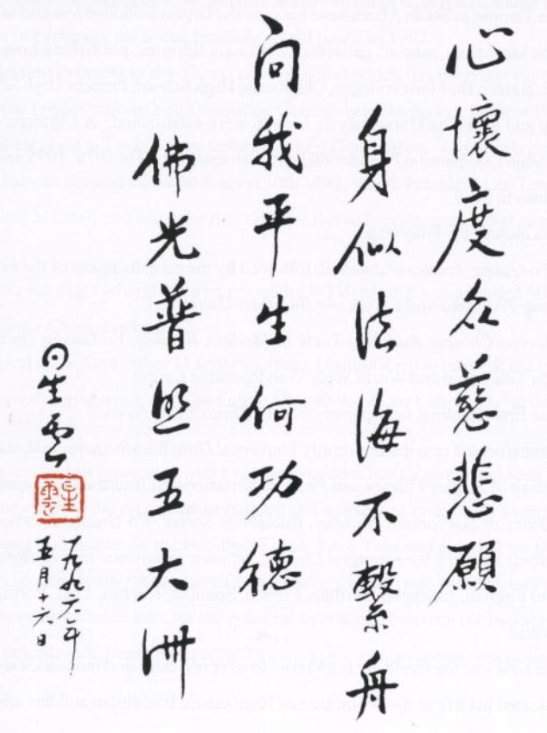 心懷度众慈悲願
身似法海不繫舟
问我平生何功德
佛光普照五大洲
星雲
星雲
一九九六年
五月六日